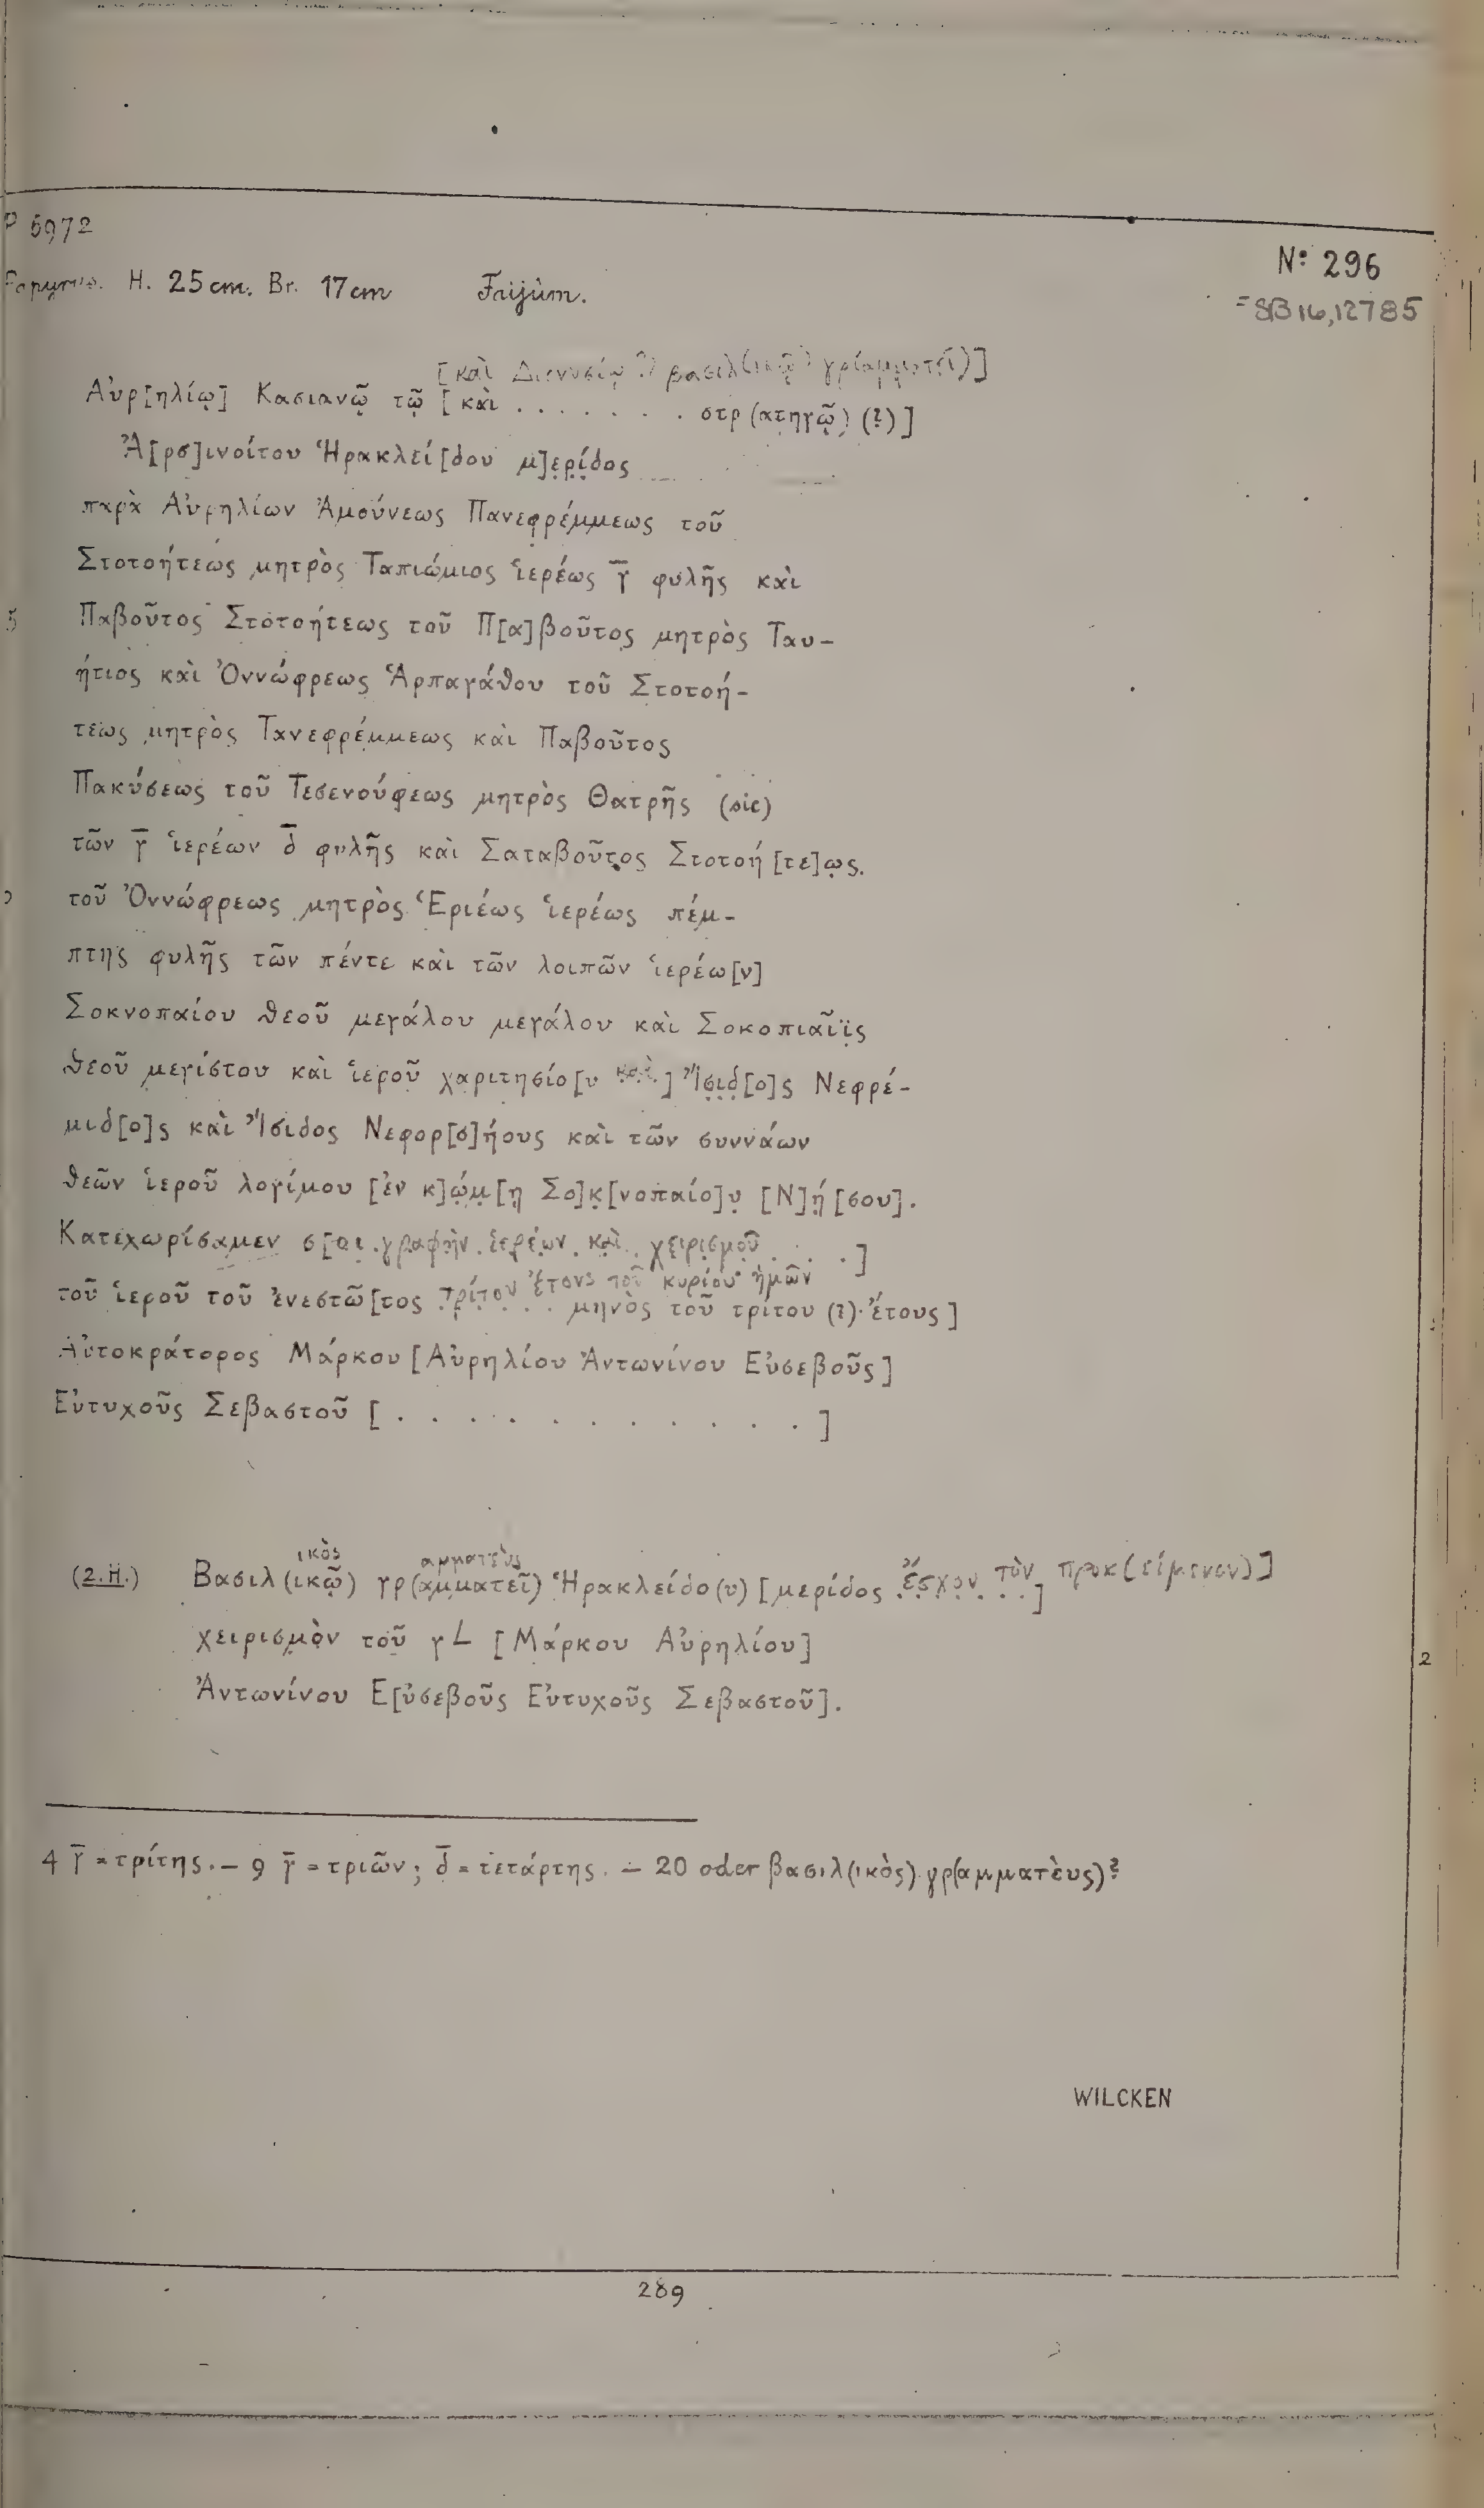 P 6972
Nº 296
Papyrus. H. 25 cm. Br. 17 cm Faijûm.
=SB 16,12785
[καὶ Διονυσίῳ ?) βασιλ(ικῷ) γρ(αμματεῖ)]
Αὐρ[ηλίῳ] Κασιανῷ τῷ [καὶ . . . . . . . . στρ(ατηγῷ) (?)]
Ἀ[ρσ]ινοίτου Ἡρακλεί[δου μ]ερίδος
παρὰ Αὐρηλίων Ἀμούνεως Πανεφρέμμεως τοῦ
Στοτοήτεως μητρὸς Ταπιώμιος ἱερέως γ̅ φυλῆς καὶ
5 Παβοῦτος Στοτοήτεως τοῦ Π[α]βοῦτος μητρὸς Ταυ-
ήτιος καὶ Ὀννώφρεως Ἁρπαγάθου τοῦ Στοτοή-
τεως μητρὸς Τανεφρέμμεως καὶ Παβοῦτος
Πακύσεως τοῦ Τεσενούφεως μητρὸς Θατρῆς (sic)
τῶν γ̅ ἱερέων δ̅ φυλῆς καὶ Σαταβοῦτος Στοτοή[τε]ως.
τοῦ Ὀννώφρεως μητρὸς Ἑριέως ἱερέως πέμ-
πτης φυλῆς τῶν πέντε καὶ τῶν λοιπῶν ἱερέω[ν]
Σοκνοπαίου θεοῦ μεγάλου μεγάλου καὶ Σοκοπιαῖϊς
θεοῦ μεγίστου καὶ ἱεροῦ χαριτησίο[υ καὶ] Ἴσιδ[ο]ς Νεφρέ-
μιδ[ο]ς καὶ Ἴσιδος Νεφορ[σ]ήους καὶ τῶν συννάων
θεῶν ἱεροῦ λογίμου [ἐν κ]ώμ[ῃ Σο]κ[νοπαίο]υ [Ν]ή[σου].
Κατεχωρίσαμεν σ[οι γραφὴν ἱερέων καὶ χειρισμοῦ . . .]
τρίτου ἔτους τοῦ κυρίου ἡμῶν
τοῦ ἱεροῦ τοῦ ἐνεστῶ[τος . . . . . . μηνὸς τοῦ τρίτου (?) ἔτους]
Αὐτοκράτορος Μάρκου [Αὐρηλίου Ἀντωνίνου Εὐσεβοῦς]
Εὐτυχοῦς Σεβαστοῦ [. . . . . . . . . . .]
ικὸς αμματεὺς ἔσχον τὸν προκ(είμενον)]
(2.H.) Βασιλ(ικῷ) γρ(αμματεῖ) Ἡρακλείδο(υ) [μερίδος . . . . . . .]
χειρισμὸν τοῦ γL [Μάρκου Αὐρηλίου]
Ἀντωνίνου Ε[ὐσεβοῦς Εὐτυχοῦς Σεβαστοῦ].
4 γ̅ = τρίτης. – 9 γ̅ = τριῶν; δ̅ = τετάρτης. – 20 oder βασιλ(ικὸς) γρ(αμματὲυς)?
WILCKEN
289